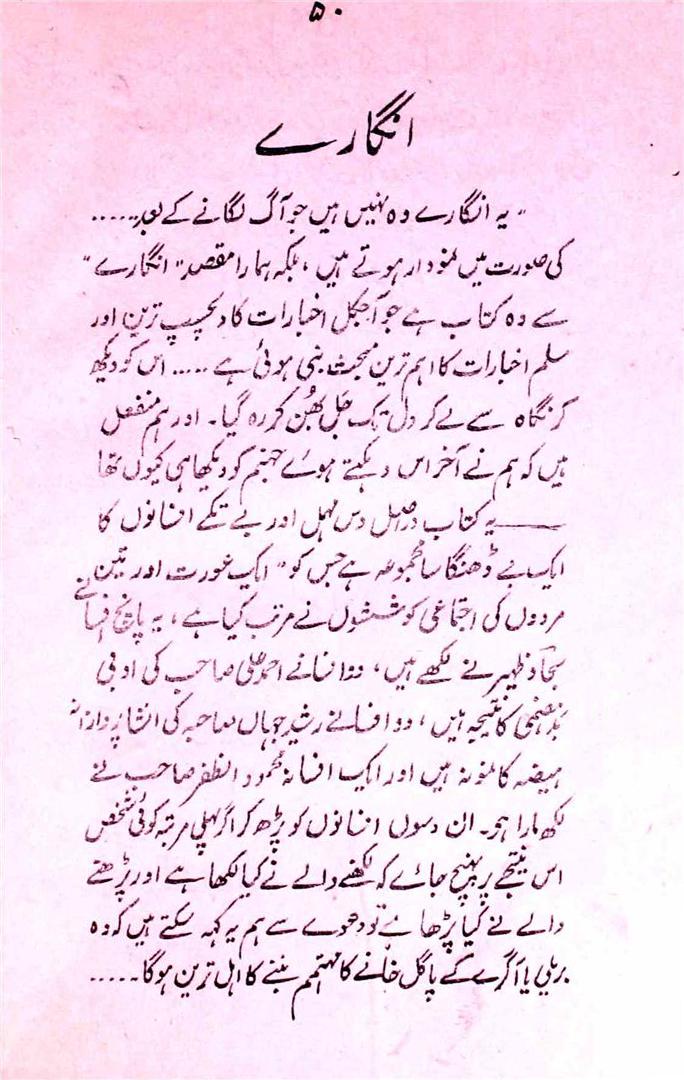 ۵۰
انگارے
"یہ انگارے وہ نہیں ہیں جو آگ لگانے کے بعد.....
کی صورت میں نمودار ہوتے ہیں، بلکہ ہمارا مقصد "انگارے"
سے وہ کتاب ہے جو آجکل اخبارات کا دلچسپ ترین اور
مسلم اخبارات کا اہم ترین مبحث بنی ہوئی ہے ..... اس کو دیکھ
کر نگاہ سے لے کر دل تک جل بھُن کر رہ گیا۔ اور ہم منفعل
ہیں کہ ہم نے آخر اس دہکتے ہوئے جہنم کو دیکھا ہی کیوں تھا
——یہ کتاب دراصل دس مہمل اور بے تکے افسانوں کا
ایک بے ڈھنگا سا مجموعہ ہے جس کو "ایک عورت اور تین
مردوں کی اجتماعی کوششوں نے مرتب کیا ہے، یہ پانچ افسانے
سجاد ظہیر نے لکھے ہیں، دو افسانے احمد علی صاحب کی ادبی
بدہضمی کا نتیجہ ہیں، دو افسانے رشید جہاں صاحبہ کی انشا پردازانہ
ہیضہ کا نمونہ ہیں اور ایک افسانہ محمود الظفر صاحب نے
لکھ مارا ہو۔ ان دسوں افسانوں کو پڑھ کر اگر پہلی مرتبہ کوئی شخص
اس نتیجے پر پہنچ جائے کہ لکھنے والے نے کیا لکھا ہے اور پڑھنے
والے نے کیا پڑھا ہے تو دعوے سے ہم یہ کہہ سکتے ہیں کہ وہ
بریلی یا آگرے کے پاگل خانے کا مہتمم بننے کا اہل ترین ہوگا.....